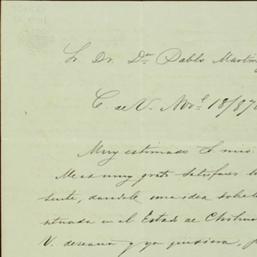 Sr. Dr. Dn. Pablo Martin
C. de V. Nov.e 18/870
Muy estimado Sr. mio
Me es muy grato satisfacer
sente, dandole una idea sobre
situada en el Estado de
V. deseaba y yo quisiera, p